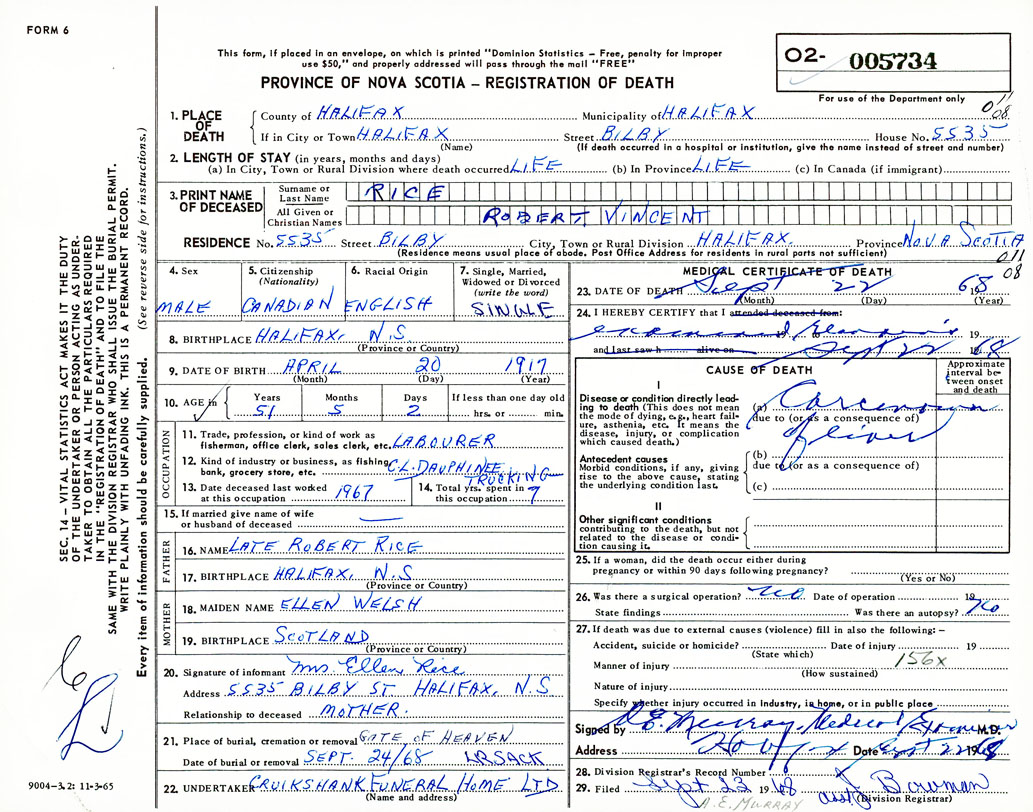 FORM 6
This form, if placed in an envelope, on which is printed "Dominion Statistics – Free, penalty for improper
use $50," and properly addressed will pass through the mail "FREE"
PROVINCE OF NOVA SCOTIA – REGISTRATION OF DEATH
O2- 005734
For use of the Department only
011
08
1. PLACE OF DEATH
County of HALIFAX Municipality of HALIFAX
If in City or Town HALIFAX Street BILBY House No. 5535
(Name) (If death occurred in a hospital or institution, give the name instead of street and number)
2. LENGTH OF STAY (in years, months and days)
(a) In City, Town or Rural Division where death occurred LIFE (b) In Province LIFE (c) In Canada (if immigrant)
3. PRINT NAME OF DECEASED
Surname or Last Name RICE
All Given or Christian Names ROBERT VINCENT
RESIDENCE No. 5535 Street BILBY City, Town or Rural Division HALIFAX. Province NOVA SCOTIA
(Residence means usual place of abode. Post Office Address for residents in rural parts not sufficient)
011
08
4. Sex
MALE
5. Citizenship (Nationality)
CANADIAN
6. Racial Origin
ENGLISH
7. Single, Married, Widowed or Divorced (write the word)
SINGLE
8. BIRTHPLACE HALIFAX, N.S.
(Province or Country)
9. DATE OF BIRTH APRIL 20 1917
(Month) (Day) (Year)
10. AGE in Years Months Days If less than one day old
51 5 2 hrs. or min.
OCCUPATION
11. Trade, profession, or kind of work as
fisherman, office clerk, sales clerk, etc. LABOURER
12. Kind of industry or business, as fishing,
bank, grocery store, etc. C.L. DAUPHINEE TRUCKING
13. Date deceased last worked
at this occupation 1967
14. Total yrs. spent in
this occupation 7
15. If married give name of wife
or husband of deceased —
FATHER
16. NAME LATE ROBERT RICE
17. BIRTHPLACE HALIFAX, N.S
(Province or Country)
MOTHER
18. MAIDEN NAME ELLEN WELSH
19. BIRTHPLACE SCOTLAND
(Province or Country)
20. Signature of informant Mrs Ellen Rice
Address 5535 BILBY ST HALIFAX, N.S
Relationship to deceased MOTHER.
21. Place of burial, cremation or removal GATE OF HEAVEN
Date of burial or removal SEPT. 24/68 LR SACK
22. UNDERTAKER CRUIKSHANK FUNERAL HOME LTD
(Name and address)
MEDICAL CERTIFICATE OF DEATH
23. DATE OF DEATH Sept 22 1968
(Month) (Day) (Year)
24. I HEREBY CERTIFY that I attended deceased from:
examined 19 19
and last saw h alive on Sept 22 1968
CAUSE OF DEATH
Approximate interval between onset and death
I
Disease or condition directly leading to death (This does not
mean the mode of dying, e.g., heart failure, asthenia, etc. It means the
disease, injury, or complication
which caused death.)
(a) Carcinoma
due to (or as a consequence of)
of liver
Antecedent causes
Morbid conditions, if any, giving
rise to the above cause, stating
the underlying condition last.
(b)
due to (or as a consequence of)
(c)
II
Other significant conditions
contributing to the death, but not
related to the disease or condition causing it.
25. If a woman, did the death occur either during
pregnancy or within 90 days following pregnancy?
(Yes or No)
26. Was there a surgical operation? no Date of operation 19
State findings Was there an autopsy? No
27. If death was due to external causes (violence) fill in also the following: –
Accident, suicide or homicide? Date of injury 19
(State which)
156x
Manner of injury
(How sustained)
Nature of injury
Specify whether injury occurred in Industry, in home, or in public place
Signed by A.E. Murray, Medical Examiner M.D.
Address Halifax Date Sept 22 1968
28. Division Registrar's Record Number
29. Filed Sept 22 1968 J Bowman
asst (Division Registrar)
A.E. MURRAY
SEC. 14 – VITAL STATISTICS ACT MAKES IT THE DUTY
OF THE UNDERTAKER OR PERSON ACTING AS UNDER-
TAKER TO OBTAIN ALL THE PARTICULARS REQUIRED
IN THE "REGISTRATION OF DEATH" AND TO FILE THE
SAME WITH THE DIVISION REGISTRAR WHO SHALL ISSUE THE BURIAL PERMIT.
WRITE PLAINLY WITH UNFADING INK. THIS IS A PERMANENT RECORD.
Every item of information should be carefully supplied. (See reverse side for instructions.)
9004-3.2: 11-3-65